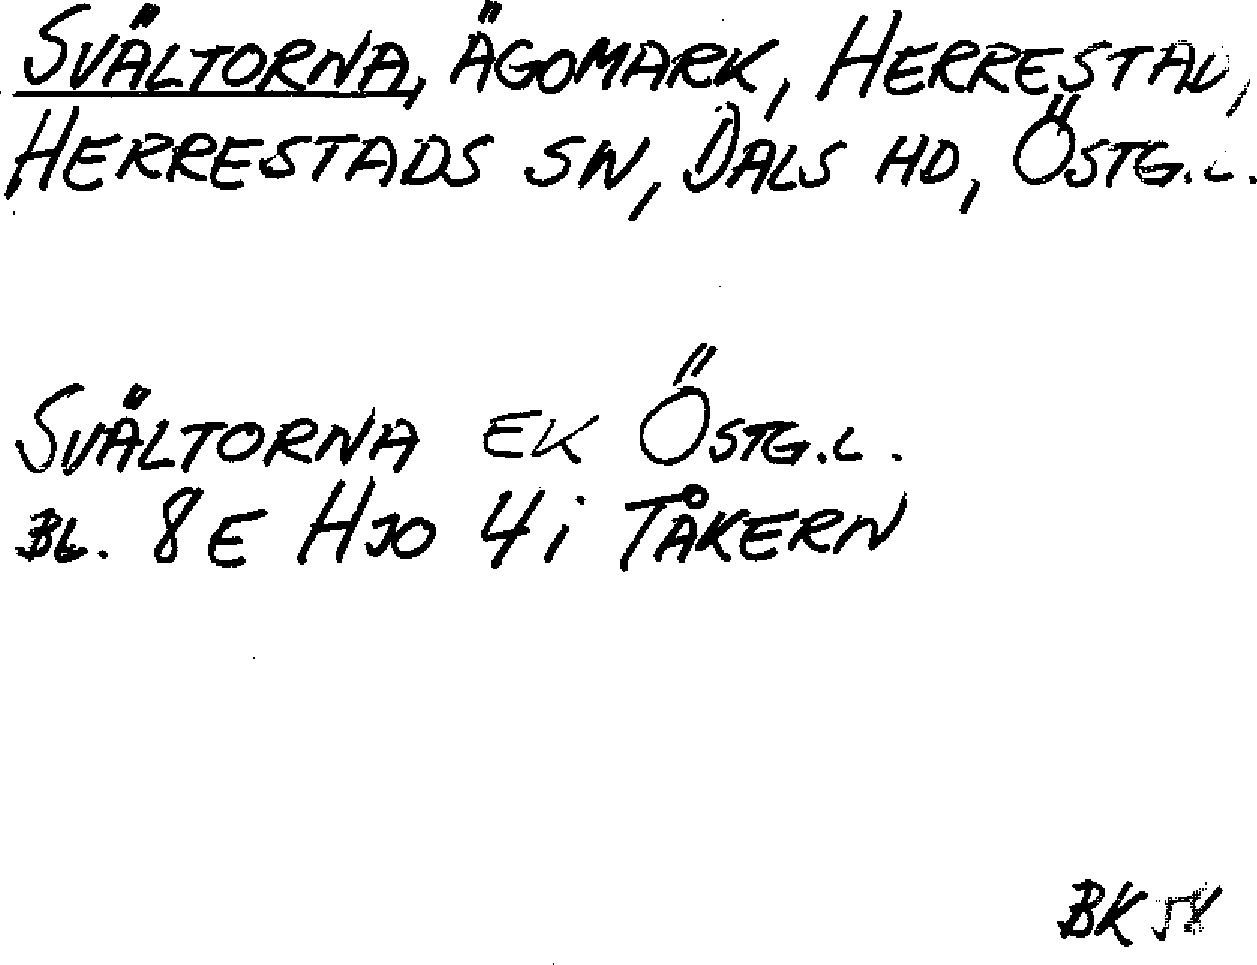 SVÄLTORNA, ÄGOMARK, HERRESTAD,
HERRESTADS SN, DALS HD, ÖSTG.L.
SVÄLTORNA EK ÖSTG.L.
BL. 8E HJO 4i TÅKERN
BK